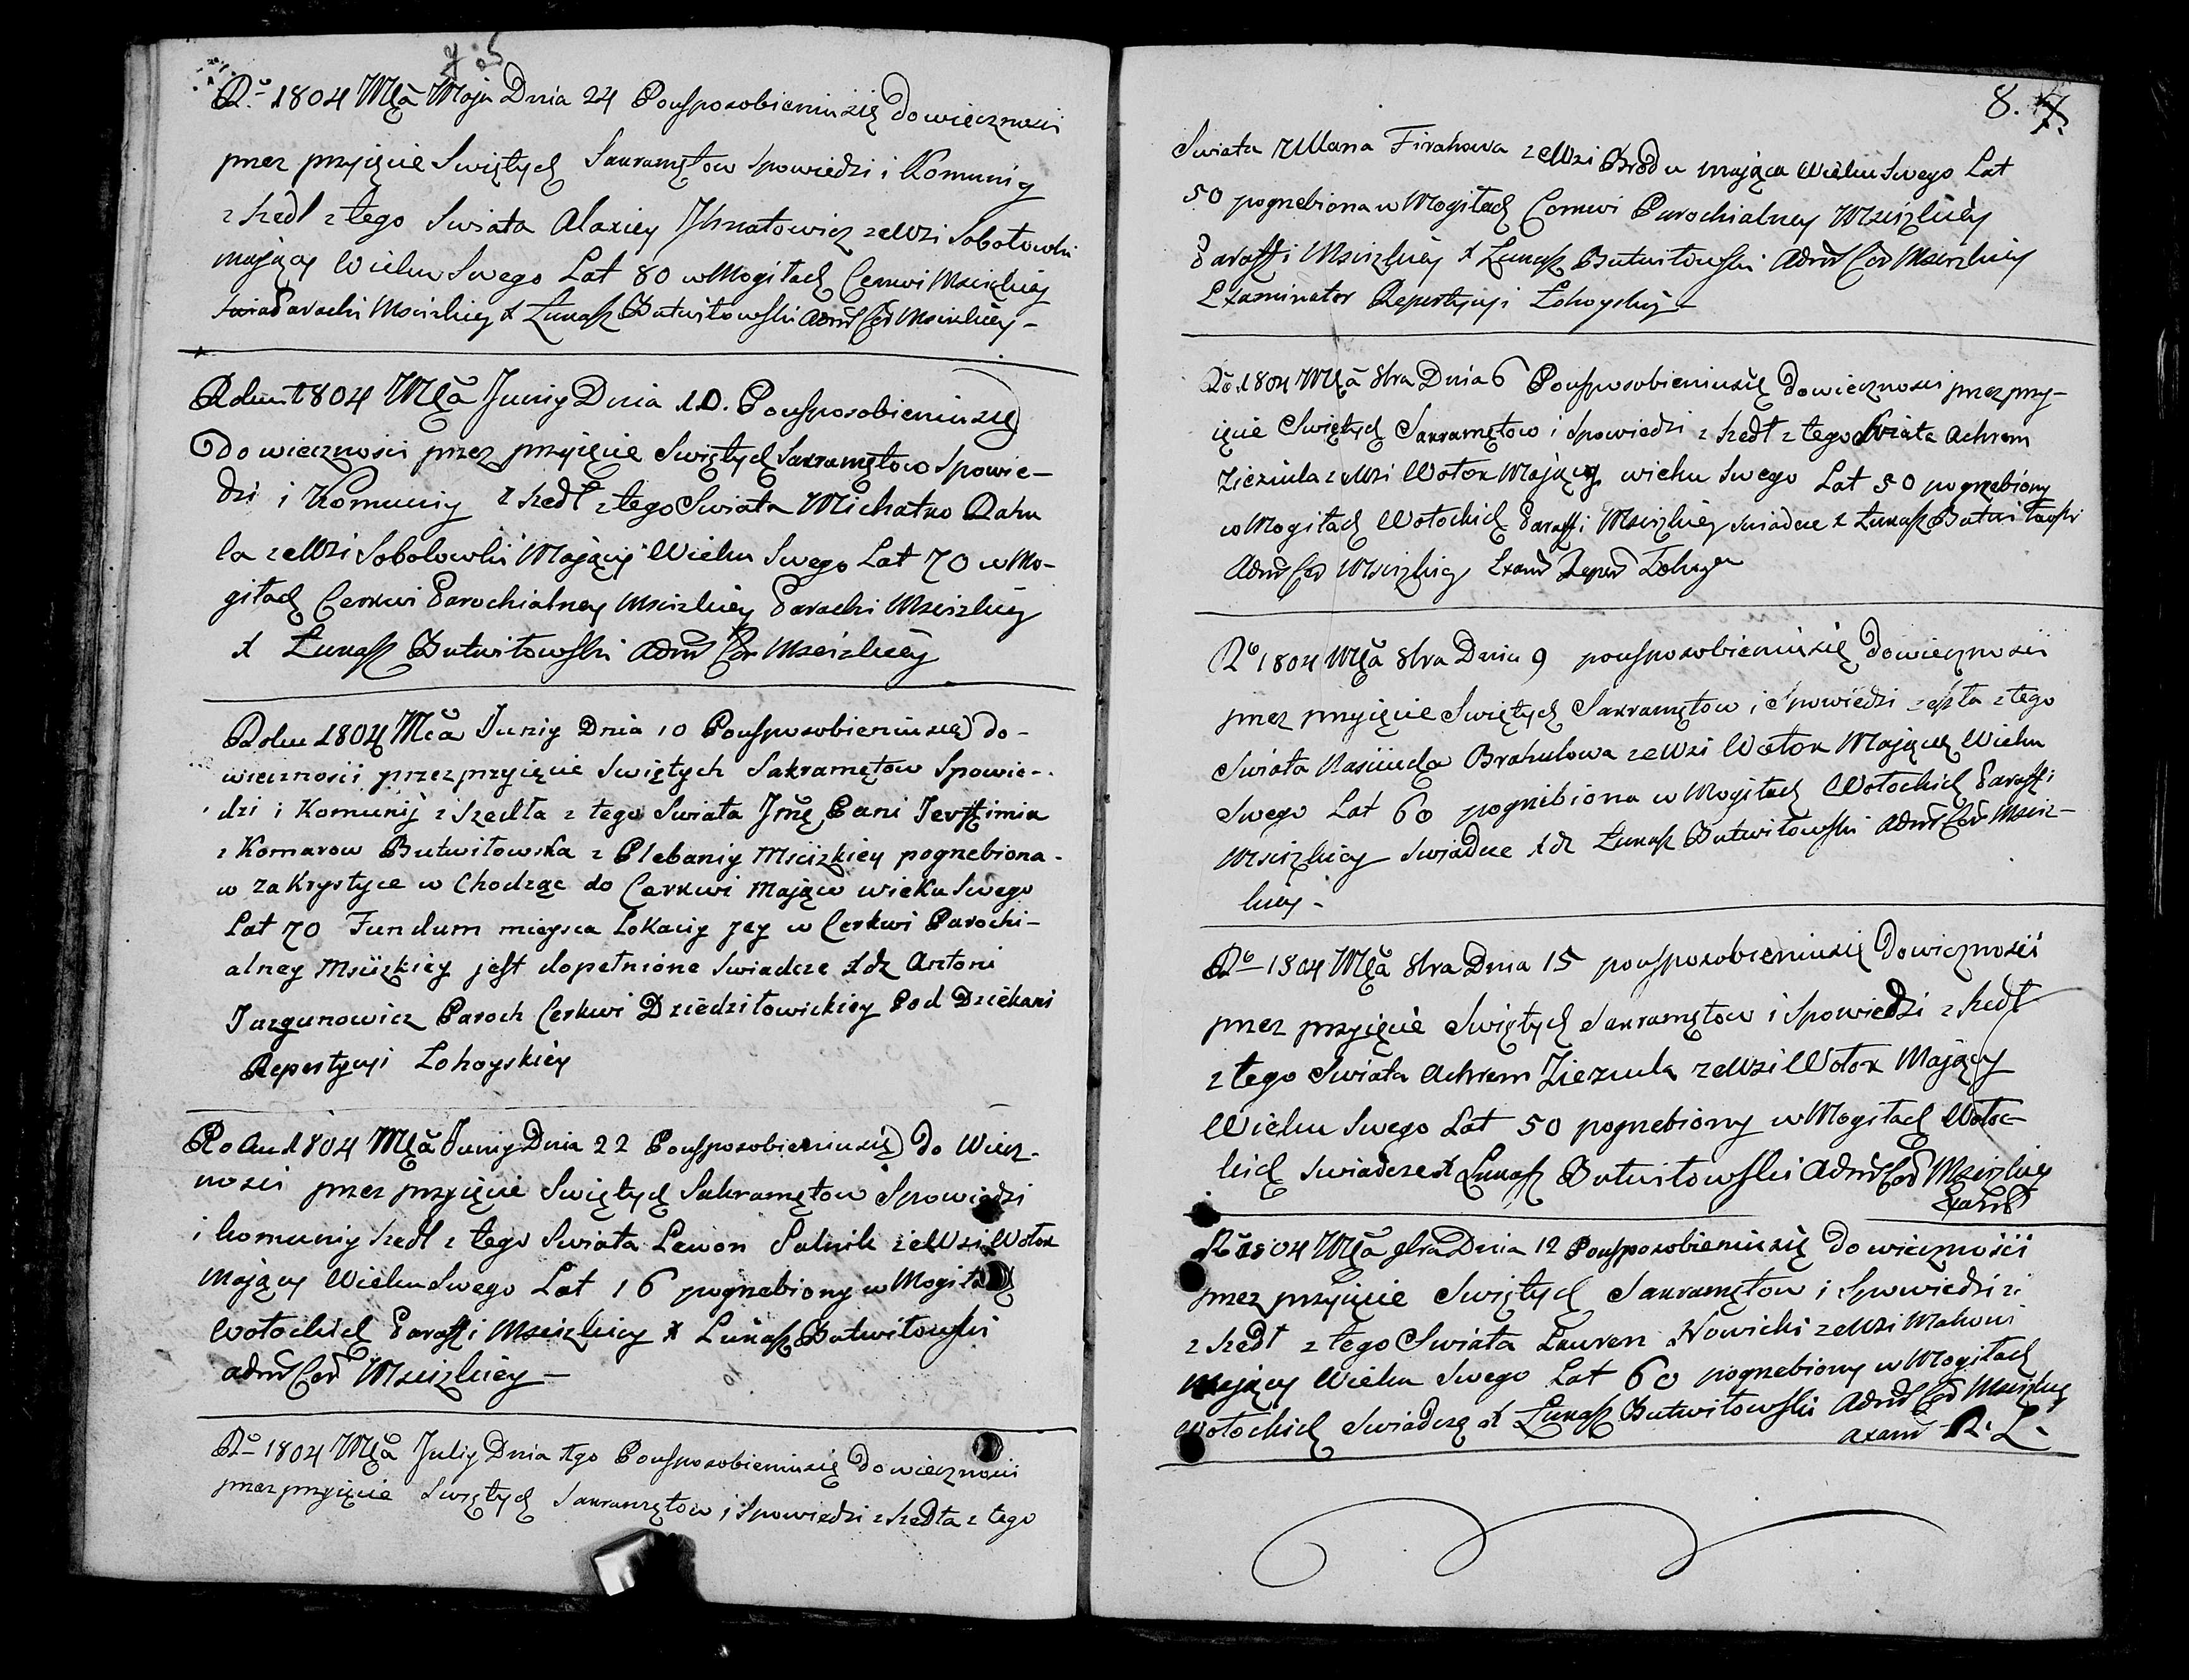 Ro 1804 Mca Maja Dnia 24 Pousposobieniu się do wiecznosci
przez przyięcie Swiętych Sakramętow Spowiedzi i Komunij
zszedł z tego Swiata Alaxiey Ihnatowicz ze Wsi Sobotowki
maiący Wieku Swego Lat 80 w Mogiłach Cerkwi Mscizkiey
Parachi Mscizkiey X Łukasz Butwiłowski Admr Cer Mscizkiey –
Roku 1804 Mca Junij Dnia 10. Pousposobieniu się
Do wiecznosci przez przyięcie Swiętych Sakramętow Spowie–
dzi i Komunij zszedł z tego Swiata Michałko Raku
la ze Wsi Sobolowki Maiący Wieku Swego Lat 70 w Mo–
giłach Cerkwi Parochialney Mscizkiey Parachi Mscizkiey
X Łukasz Butwiłowski Admr Cer Mscizkiey
Roku 1804 Mca Junij Dnia 10 Pousposobieniu się do–
wiecznosci przez przyięcie Swiętych Sakramętow Spowie–
dzi i Komunij z Szedła z tego Swiata Jmę Pani Jeffimia
z Komarow Butwiłowska z Plebanij Mscizkiey pogrzebiona
w zakrystyce w Chodząc do Cerkwi Maiąca wieku Swego
Lat 70 Fundum mieysca Lokacij jey w Cerkwi Parochi–
alney Mscizkiey jest dopełnione Swiadcze X dz Antoni
Jazgunowicz Paroch Cerkwi Dziedziłowickiey Pod Dziekani
Repertycyi Lohoyskiey
Roku 1804 Mca Junij Dnia 22 Pousposobieniu się do Wiecz–
nosci przez przyięcie Swiętych Sakramętow Spowiedzi
i komunij szedł z tego Swiata Lewon Salnik ze Wsi Wołok
Maiący Wieku Swego Lat 16 pogrzebiony w Mogiłach
Wołockich Paraffi Mscizkiey X Łukasz Butwiłowski
Admr Cer Mscizkiey –
Ro 1804 Mca Julij Dnia 1go Pousposobieniu się do wiecznosci
przez przyięcie Swiętych Sakramętow i Spowiedzi z szedła z tego
8. 7.
Swiata Ullana Firahowa ze Wsi Brodu maiąca Wieku Swego Lat
50 pogrzebiona w Mogiłach Cerkwi Parochialney Mscizkiey
Paraffi Mscizkiey X Łukasz Butwiłowski Admr Cer Mscizkiey
Examinator Repertycyi Łohoyskiey –
Ro 1804 Mca 8bra Dnia 6 Pousposobieniu się do wiecznosci przez przy–
ięcie Swiętych Sakramętow i Spowiedzi z szedł z tego Swiata Achrem
Zieziula ze Wsi Wołok Maiący wieku Swego Lat 50 pogrzebiony
w Mogiłach Wołockich Paraffi Mscizkiey Swiadcze X Łukasz Butwiłowski
Admr Cer Mscizkiey Exam Reper
Ro 1804 Mca 8bra Dnia 9 pousposobieniu się do wiecznosci
przez przyięcie Swiętych Sakramętow i Spowiedzi zeszła z tego
Swiata Brahulowa ze Wsi Wołok Maiące Wieku
Swego Lat 60 pogrzebiona w Mogiłach Wołockich Paraffi
Mscizkiey Swiadcze X dz Łukasz Butwiłowski Admr Cer Msciz–
kiey –
Ro 1804 Mca 8bra Dnia 15 pousposobieniu się do wiecznosci
przez przyięcie Swiętych Sakramętow i Spowiedzi z szedł
z tego Swiata Achrem Ziezula ze Wsi Wołok Maiący
Wieku Swego Lat 50 pogrzebiony w Mogiłach Wołoc–
kich Swiadcze X Łukasz Butwiłowski Admr Cer Mscizkiey
Ro 1804 Mca 9bra Dnia 12 Pousposobieniu się do wiecznosci
przez przyięcie Swiętych Sakramętow i Spowiedzi zi
z szedł z tego Swiata Lauren Nowicki ze Wsi Makowi
Maiący Wieku Swego Lat 60 pogrzebiony w Mogiłach
Wołockich Swiadczę X Łukasz Butwiłowski Admr Cer Mscizkiey
exam R. L.